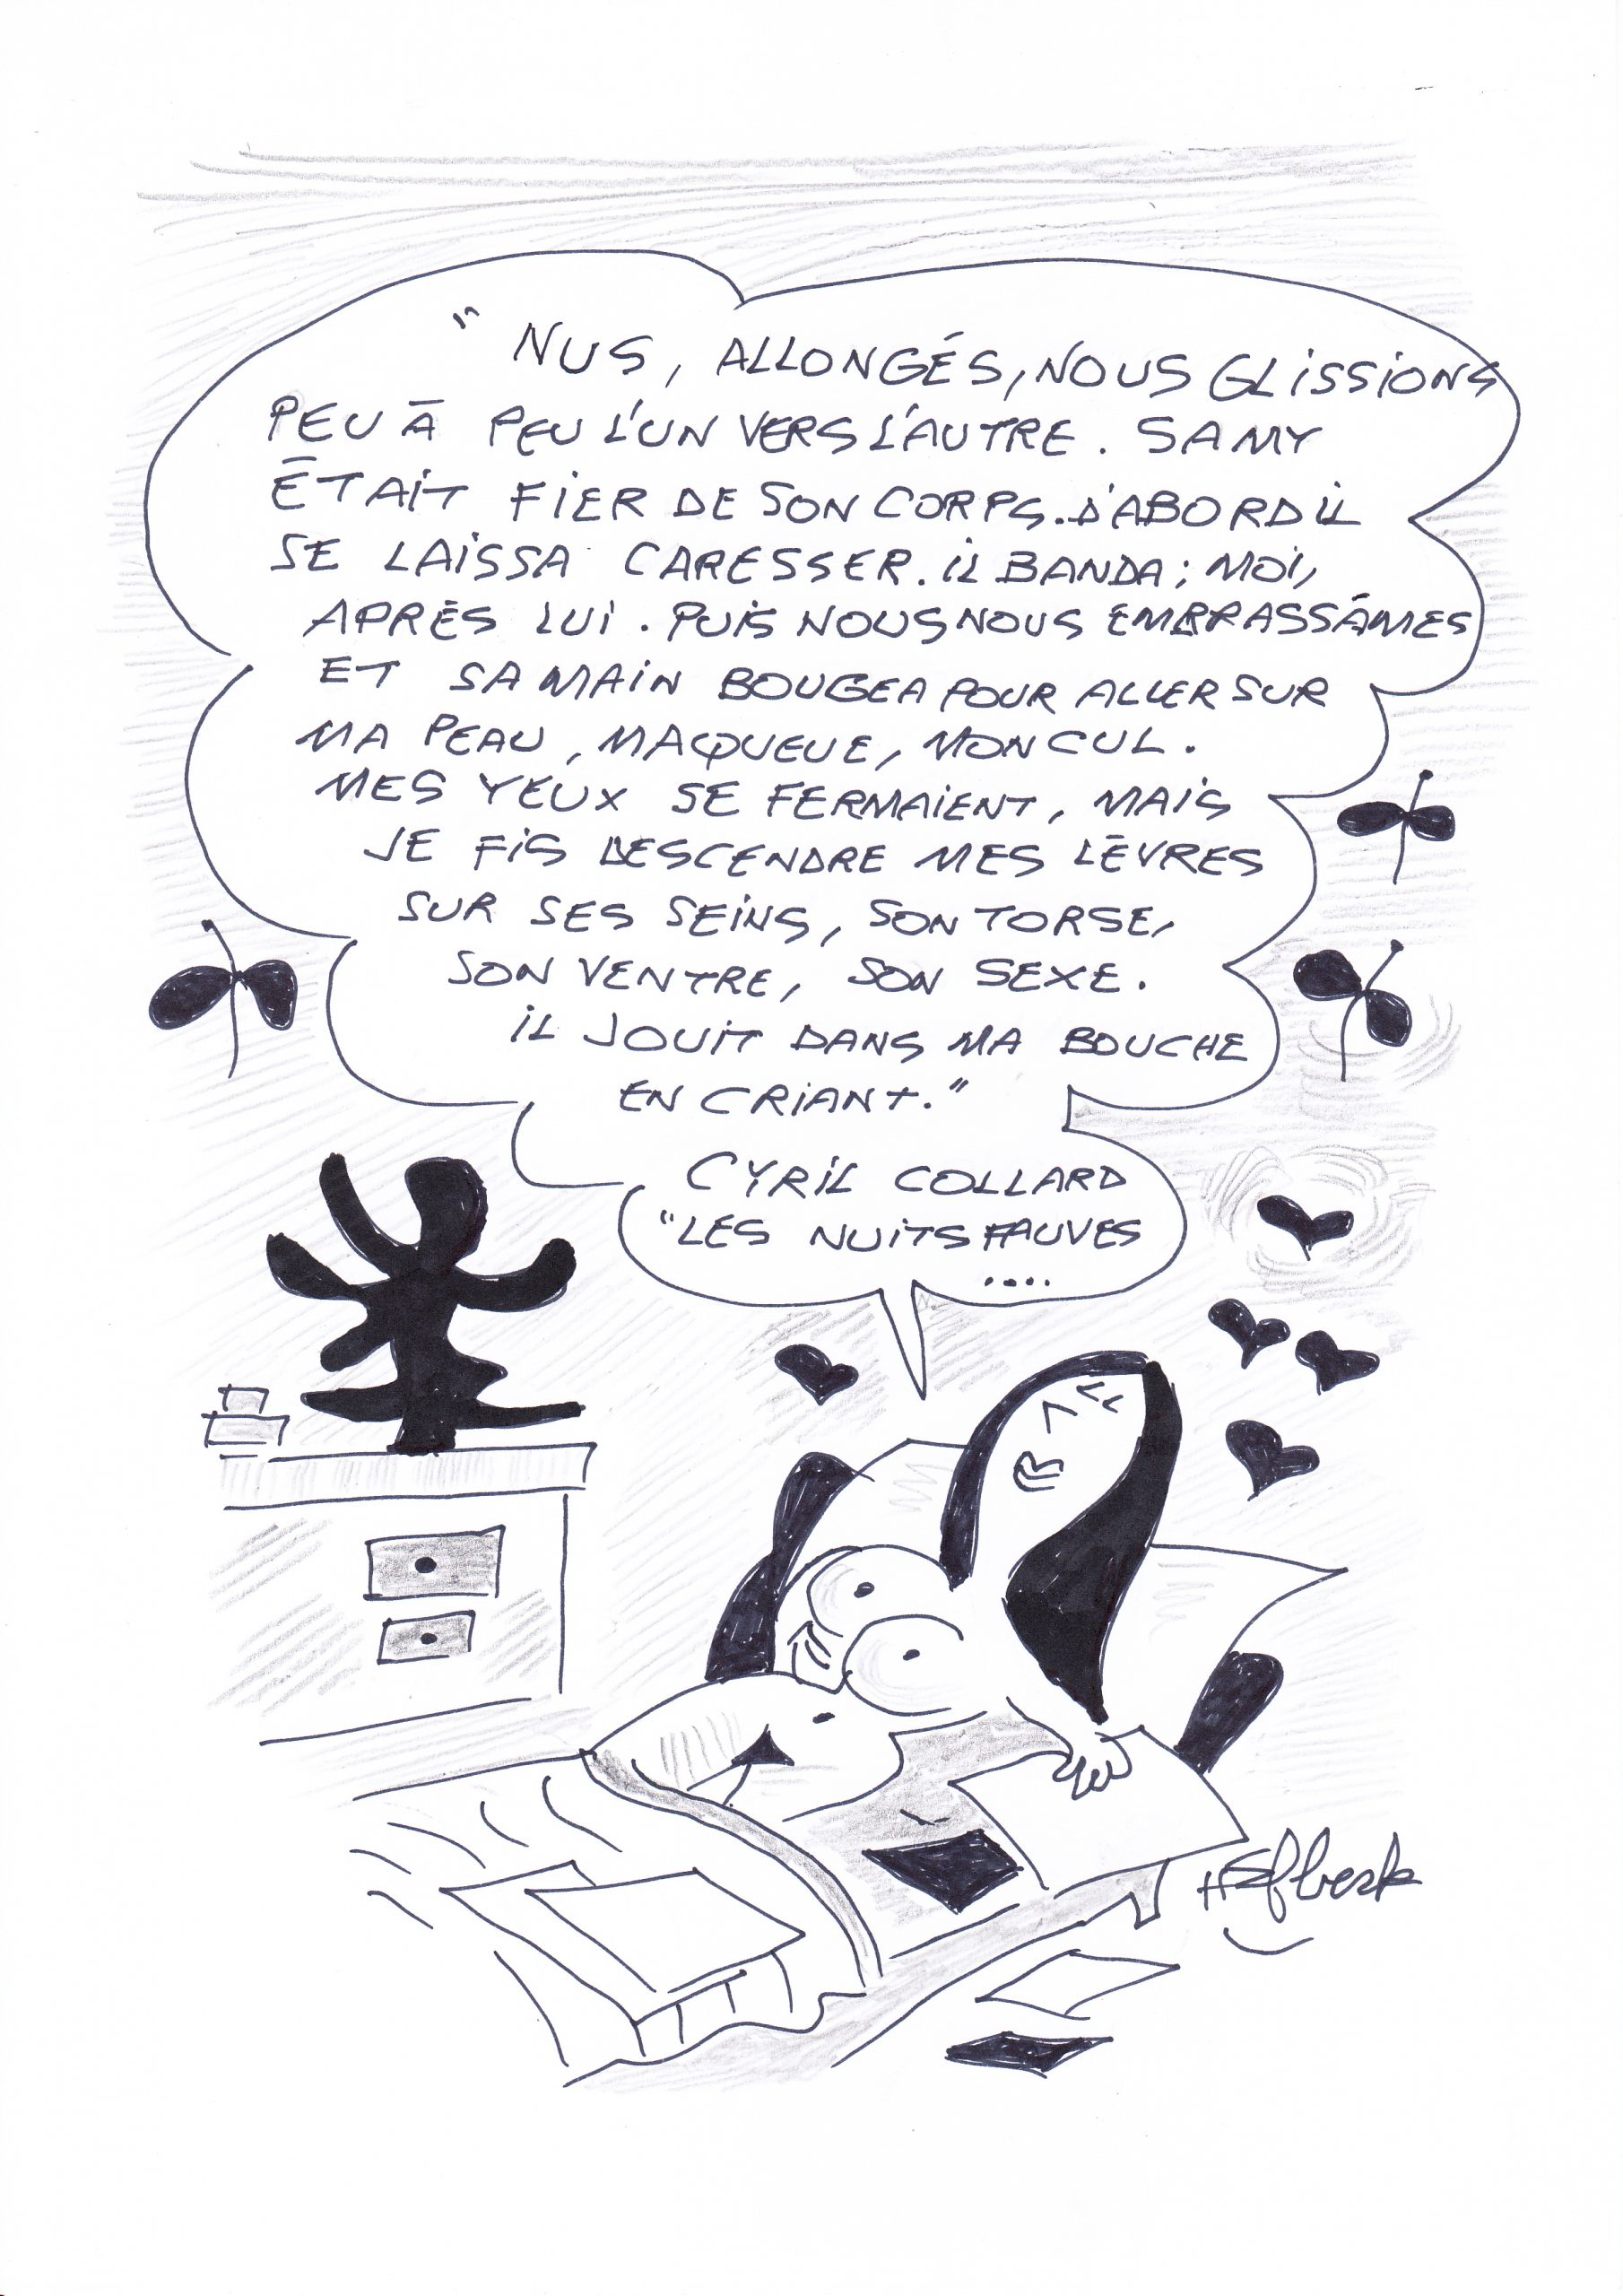 " NUS, ALLONGÉS, NOUS GLISSIONS
PEU À PEU L'UN VERS L'AUTRE. SAMY
ÉTAIT FIER DE SON CORPS. D'ABORD IL
SE LAISSA CARESSER. IL BANDA; MOI,
APRÈS LUI. PUIS NOUS NOUS EMBRASSÂMES
ET SA MAIN BOUGEA POUR ALLER SUR
MA PEAU, MA QUEUE, MON CUL.
MES YEUX SE FERMAIENT, MAIS
JE FIS DESCENDRE MES LÈVRES
SUR SES SEINS, SON TORSE,
SON VENTRE, SON SEXE.
IL JOUIT DANS MA BOUCHE
EN CRIANT."
CYRIL COLLARD
"LES NUITS FAUVES
....